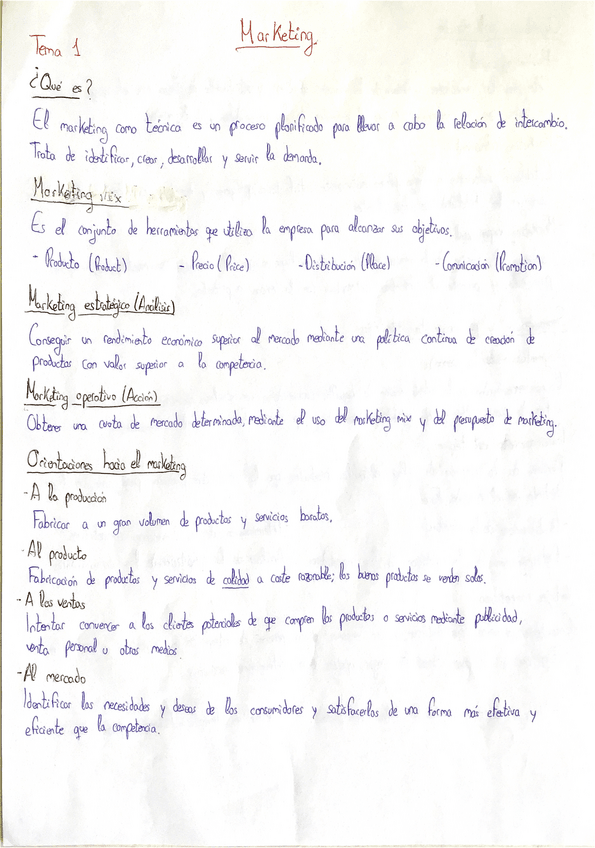 Marketing.
Tema 1
¿Qué es?
El marketing como técnica es un proceso planificado para llevar a cabo la relación de intercambio.
Trata de identificar, crear, desarrollar y servir la demanda.
Marketing mix
Es el conjunto de herramientas que utiliza la empresa para alcanzar sus objetivos.
- Producto (Product) - Precio (Price) - Distribución (Place) - Comunicación (Promotion)
Marketing estratégico (Análisis)
Conseguir un rendimiento económico superior al mercado mediante una política continua de creación de
productos con valor superior a la competencia.
Marketing operativo (Acción)
Obtener una cuota de mercado determinada, mediante el uso del marketing mix y del presupuesto de marketing.
Orientaciones hacia el marketing
- A la producción
Fabricar a un gran volumen de productos y servicios baratos.
- Al producto
Fabricación de productos y servicios de calidad a coste razonable; los buenos productos se venden solos.
- A las ventas
Intentar convencer a los clientes potenciales de que compren los productos o servicios mediante publicidad,
venta personal u otros medios.
- Al mercado
Identificar las necesidades y deseos de los consumidores y satisfacerlos de una forma más efectiva y
eficiente que la competencia.